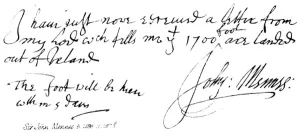 I haue just now receiued a letter from
my lord wch tells me yt 1700 foot are landed
out of Ireland
The foot will be here
within 5 daies
John: Mennes:
Sir John Mennes